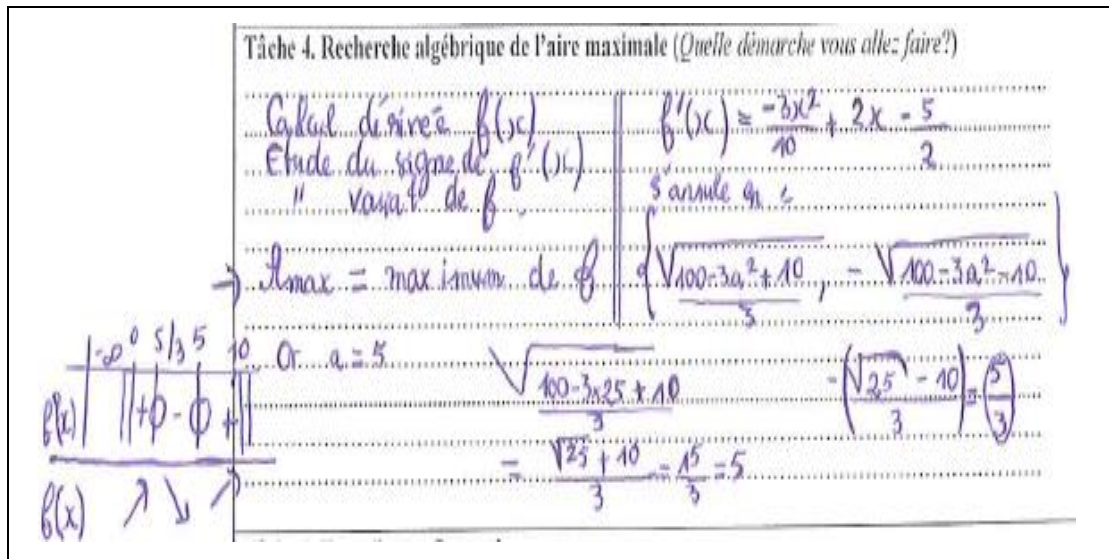 Tâche 4. Recherche algébrique de l'aire maximale (Quelle démarche vous allez faire?)
Calcul dérivée f(x)
Etude du signe de f'(x)
" variat° de f
→ Amax = maximum de f
f'(x) = -3x²/10 + 2x - 5/2
s'annule en :
{ √100-3a²+10 / 3 , - √100-3a²-10 / 3 }
Or a = 5
√100-3x25+10 / 3
= √25+10 / 3 = 15/3 = 5
-(√25 - 10 / 3) = (5/3)
-∞ 0 5/3 5 10
f'(x) || + 0 - 0 + ||
f(x) ↗ ↘ ↗